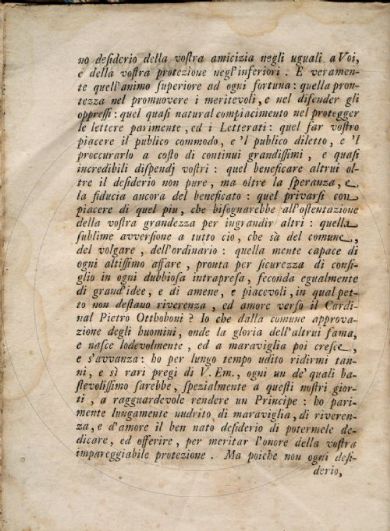 no desiderio della vostra amicizia negli uguali a Voi,
e della vostra protezione negl'inferiori. E veramen-
te quell'animo superiore ad ogni fortuna: quella pron-
tezza nel promuovere i meritevoli, e nel difender gli
oppressi: quel quasi natural compiacimento nel protegger
le lettere parimente, ed i Letterati: quel far vostro
piacere il publico commodo, e 'l publico diletto, e 'l
proccurarlo a costo di continui grandissimi, e quasi
incredibili dispendj vostri: quel beneficare altrui ol-
tre il desiderio non pure, ma oltre la speranza, e
la fiducia ancora del beneficato: quel privarsi con
piacere di quel piu, che bisognarebbe all'ostentazione
della vostra grandezza per ingrandir altri: quella
sublime avversione a tutto cio, che sà del comune,
del volgare, dell'ordinario: quella mente capace di
ogni altissimo affare, pronta per sicurezza di consi-
glio in ogni dubbiosa intrapresa, feconda egualmente
di grand'idee, e di amene, e piacevoli, in qual pet-
to non destano riverenza, ed amore verso il Cardi-
nal Pietro Ottoboni? Io che dalla comune approva-
zione degli huomini, onde la gloria dell'altrui fama,
e nasce lodevolmente, ed a maraviglia poi cresce,
e s'avvanza: ho per lungo tempo udito ridirmi tan-
ti, e sì rari pregi di V. Em., ogni un de' quali ba-
stevolissimo sarebbe, spezialmente a questi nostri gior-
ni, a ragguardevole rendere un Principe: ho pari-
mente lungamente nudrito di maraviglia, di riveren-
za, e d'amore il ben nato desiderio di potermele de-
dicare, ed offerire, per meritar l'onore della vostra
impareggiabile protezione. Ma poiche non ogni desi-
derio,